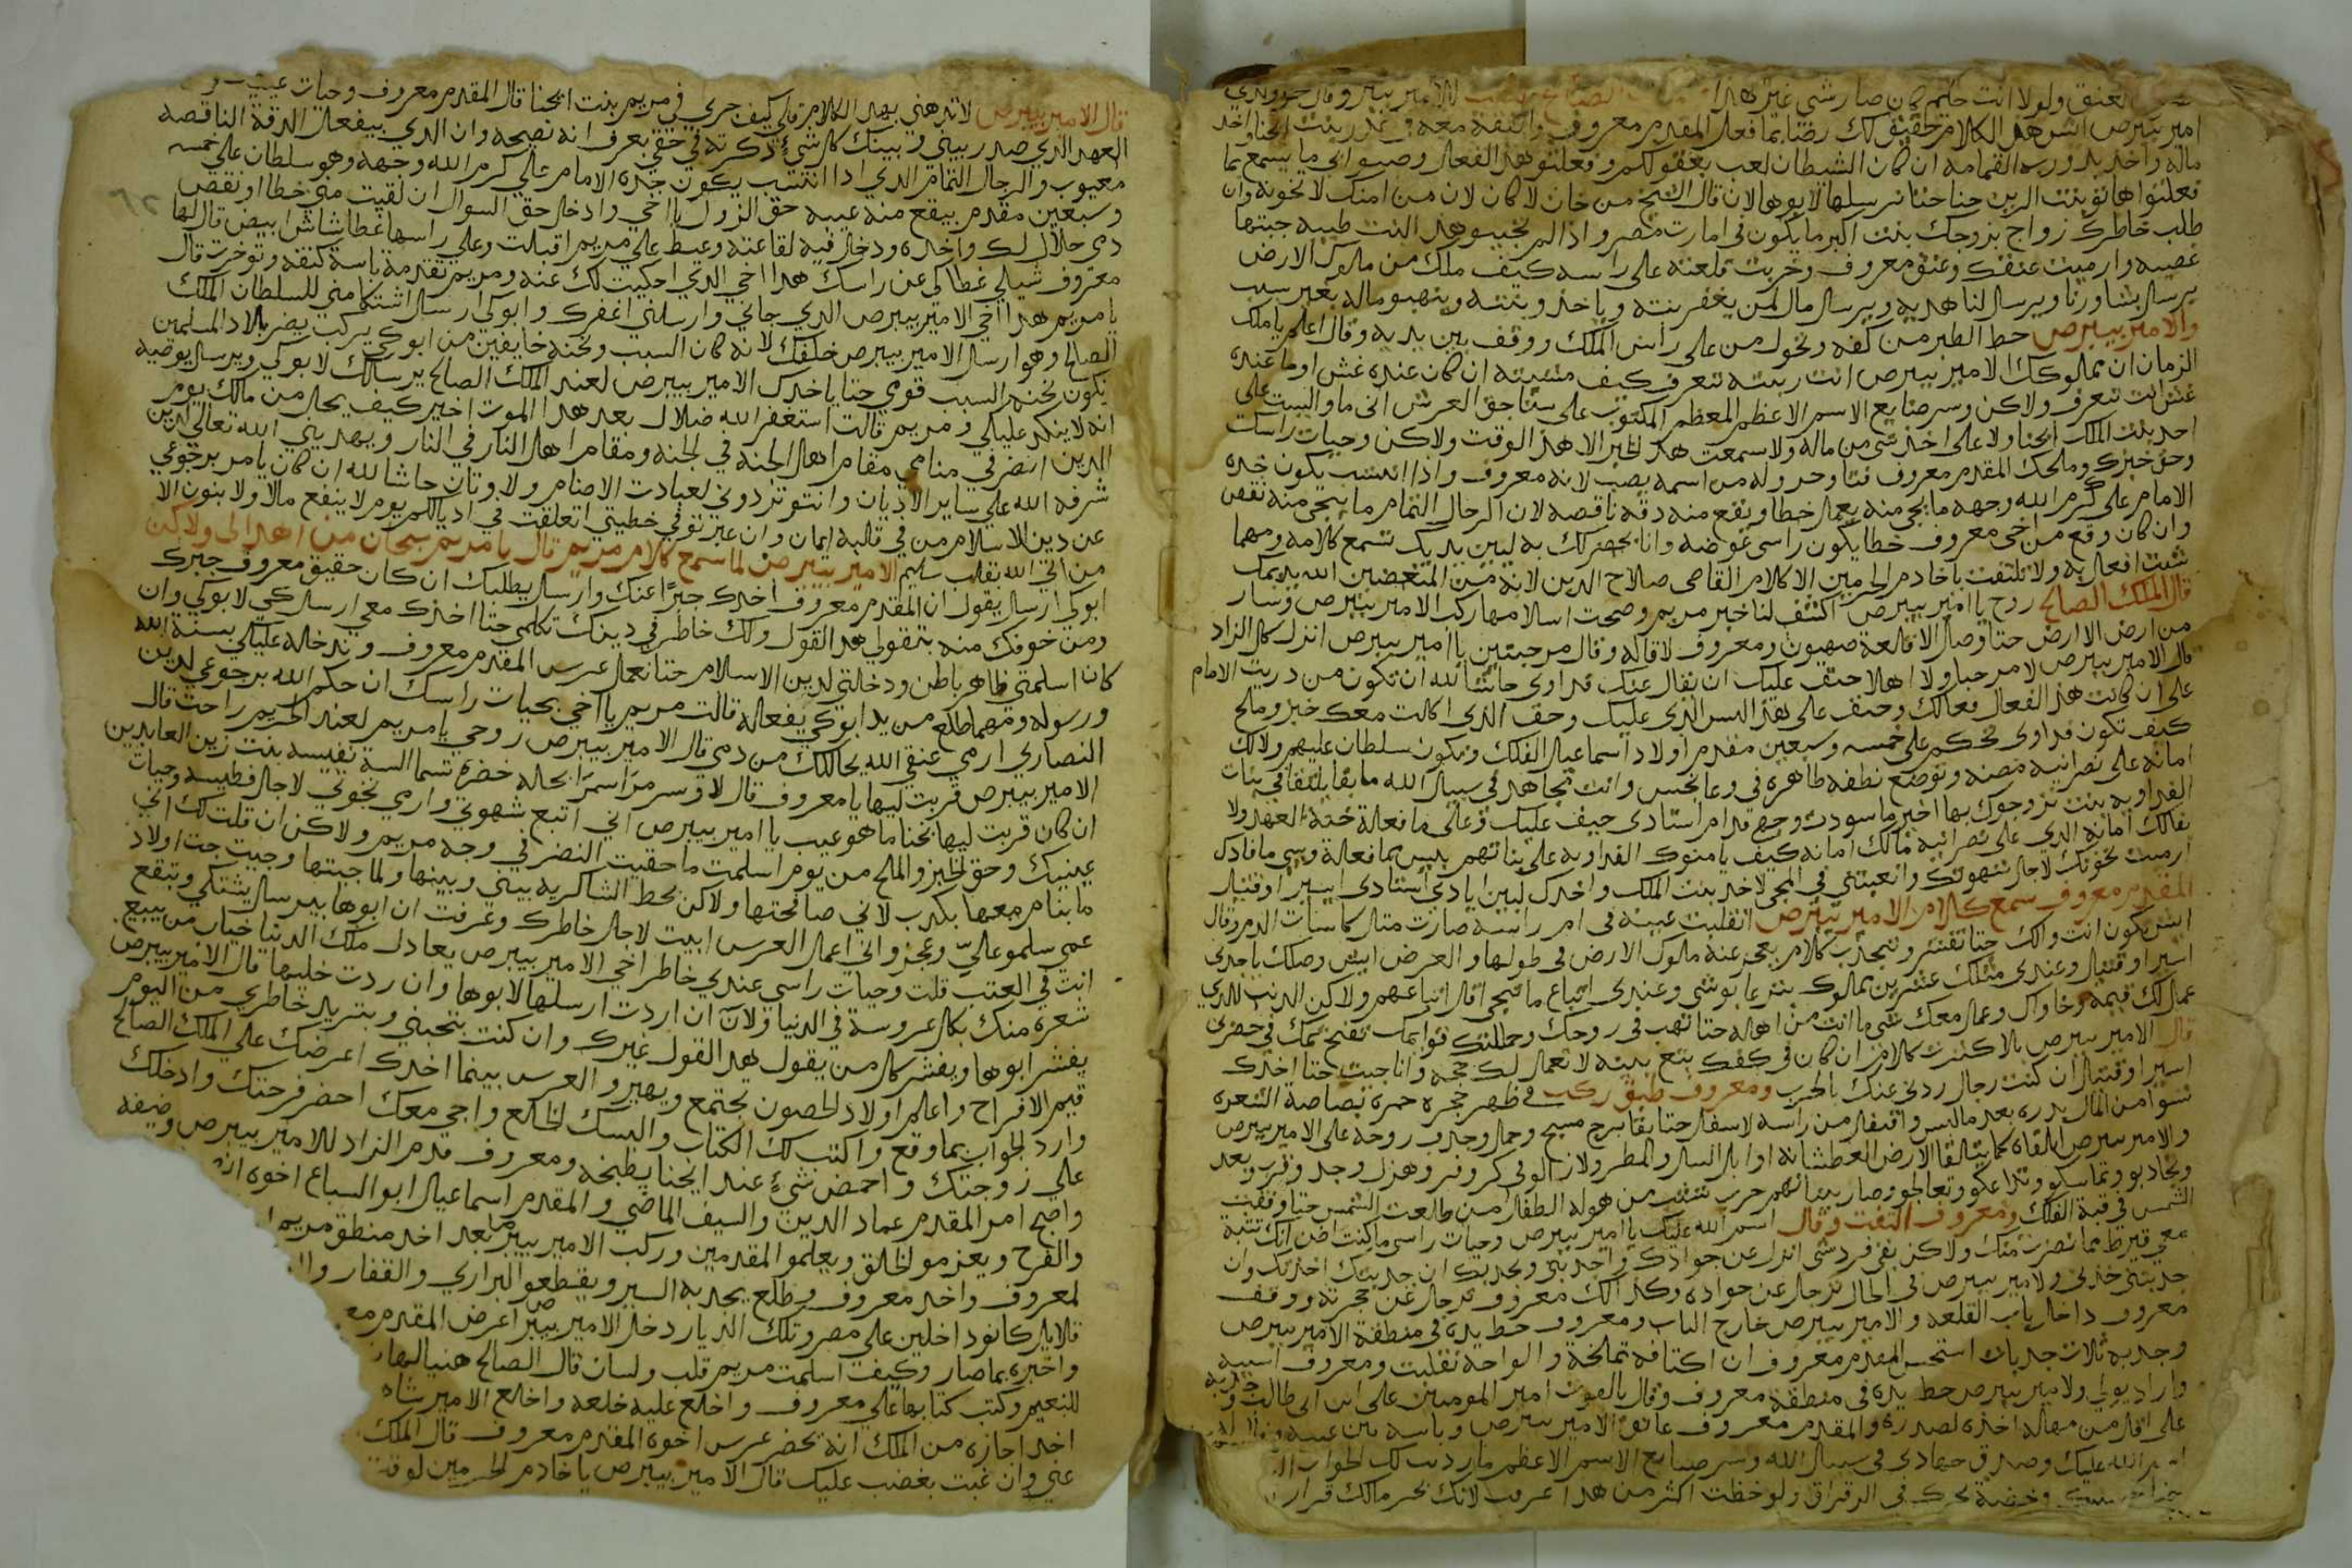 العنق ولولا انت حليم كان صار شي غير هدا
امير بيبرص اش هدا الكلام حقيق لك رضنا بما فعل المقدم معروف
ماله واخد بدوره القمامه ان كان الشيطان لعب بعقولكم وفعلتو هدا الفعال وصبوا اي ما يسمع بما
فعلتوا هاتو بنت الرين حنا حتا نرسلها لابوها لان قال الشيخ من خان لا كان لان من امنك لا تخونه وان
طلب خاطرك زواج بزوجك بنت اكبر ما يكون في امارت مصر واذا لم تجيبو هدا البنت طيبه جبتها
غصبيه وارميت عنقك وعنق معروف وخربت قلعته على راسه كيف ملك من ملوك الارض
يرسل يشاورنا ويرسل لنا هديه ويرسل مال لمن يغفر بنته وياخد وبنته وينهبو ماله بغير سبب
والامير بيبرص حط الطبر من كفه وتحول من على راس الملك ووقف بين يديه وقال اعلم يا ملك
الزمان ان مملوكك الامير بيبرص انت ربيته تعرف كيف منشيته ان كان عنده غش اوما عنده
غش انت تعرف ولاكن وسر صنايع الاسم الاعظم المعظم المكتوب على سناجق العرش اني ما واليست على
احد بنت الملك ايحنا ولا على اخد شي من ماله ولا سمعت هدا الخبر الا هدا الوقت ولاكن وحيات راسك
وحق خبزك وملحك المقدم معروف فتا وحر وله من اسمه نصيب لانه معروف واذا انتسب يكون جده
الامام علي كرم الله وجهه ما يجي منه يعمل خطا ويقع منه دقه ناقصه لان الرجال التمام ما يجي منه نقص
وان كان وقع من اخي معروف خطا يكون راسي عوضه وانا بحضرلك به لبين يديك تسمع كلامه ومهما
شيت افعل به ولا تلتفت يا خادم الحرمين الا كلام القاضي صلاح الدين لانه من المبغضين الله يديمك
قال الملك الصالح روح يا امير بيبرص اكشف لنا خبر مريم وصحت اسلامها ركب الامير بيبرص وسار
من ارض الا ارض حتا وصل الا قلعة صهيون ومعروف لاقاله وقال مرحبتين يا امير بيبرص انزل كل الزاد
قال الامير بيبرص لا مرحبا ولا اهلا حيف عليك ان يقال عنك فداوى حاشا لله ان تكون من دريت الامام
علي ان كانت هدا الفعال فعالك وحيف على هدا اليس الدي عليك وحيف الدي اكلت معك خبز وملح
كيف تكون فداوى تحكم على خمسه وسبعين مقدم اولاد اسماعيل الفلك وتكون سلطان عليهم ولالك
امانه على نصرانيه مصنه وتوضع نطفه طاهره في وعا نجس وانت تجاهد في سبيل الله ما بقا يلتقا في بنات
الفداويه بنت تزوجوك بها اخير ما سودت وجهي قدام استادي حيف عليك وعلى ما فعلة خنة العهد ولا
بقالك امانه الدي على نصرانيه مالك امانه كيف يامنوك الفداويه على بناتهم بيس بما فعلة وبسي ما فادك
ارميت نخوتك لاجل شهوتك واتعبتني في المجي لاخد بنت الملك واخدك لبين ايادي استادي اسير او قتيل
المقدم معروف سمع كلام الامير بيبرص انقلبت عينيه في ام راسه صارت متل كاسات الدم وقال
اش يكون انت والك حتا تفشر وتبجدب كلام يعجز عنه ملوك الارض في طولها والعرض ايش وصلك باجدي
اسير او قتيل وعندي متلك عشرين مملوك بنزع بابوشي وعندي اتباع ما تجي اقل اتباعهم ولاكن الدنب للدي
عمل لك قيمة وخاواك وعمل معك شي ما انت من اهله حتا تهب في روحك وحملتك قوايمك تفتح تمك في حضري
قال الامير بيبرص بلا كترت كلام ان كان في كفك بتع بينه لا تعمل لك حجه وانا جيت حتا اخدك
اسير او قتيل ان كنت رجل ردني عنك بالحرب ومعروف طبق ركب في ظهر حجره حمره بصاصة الشعره
تسوا من المال بدره بعد ما لبس واتقل من راسه لاسفل حتا بقا برج مسيح وحمل وجدب روحه على الامير بيبرص
والامير بيبرص التقاه كما تتلقا الارض العطشانه اوايل السيل والمطر ولازالو في كر وفر وهزل وجد وقرب وبعد
وتجادبو وتماسكو وتداعكو وتعالجو وصار بيناتهم حرب تشيب من هوله الطفل من طالعت الشمس حتا وقفت
الشمس في قبة الفلك ومعروف التفت وقال اسم الله عليك يا امير بيبرص وحيات راسي ما كنت اضن انك تتبة
معي قيرط مما نصرت منك ولاكن بقي فرد شي انزل عن جوادك واجدبني وبجدبك ان جدبتك اخدتك وان
جدبتني خدني ولامير بيبرص في الحال ترجل عن جواده وكدالك معروف ترجل عن حجرته ووقف
معروف داخل باب القلعه والامير بيبرص خارج الباب ومعروف حط يده في منطقة الامير بيبرص
وجدبه تلات جدبات استحس المقدم معروف ان اكتافه تملخة والواحه تقلبت ومعروف اسيبه
واراد يولي ولامير بيبرص حط يده في منطقة معروف وقال يالعون امير المومنين علي ابن ابي طالب وجدبه
على اقل من مهاله اخده لصدره والمقدم معروف عانق الامير بيبرص وباسه بين عينيه وقال له
اسم الله عليك وصدق جهادي في سبيل الله وسر صنايع الاسم الاعظم ما ردت لك الجواب
وخضة بحرك في الرقراق ولو خظت اكثر من هدا غرقت لانك بحر مالك قرار
قال الامير بيبرص لا تدهني بهدا الكلام قلي كيف جري في مريم بنت ايحنا قال المقدم معروف وحيات عينيـ
العهد الدي صدر بيني وبينك كل شيءٍ دكرته في حقي بعرف انه نصيحه وان الدي بيفعل الدقة الناقصه
معيوب والرجال التمام الدي ادا انتسب يكون جده الامام علي كرم الله وجهه وهو سلطان علي خمسه
وسبعين مقدم بيقع منه عيبه حق النزول يا اخي وادخل حق السوال ان لقيت مني خطا او نقص
دمي حلال لك واخده ودخل فيه لقاعته وعيط علي مريم اقبلت وعلي راسها غطا شاش ابيض قال لها
معروف شيلي غطاكي عن راسك هدا اخي الدي احكيت لك عنه ومريم تقدمة باسة كتفه وتوخرت قال
يا مريم هدا اخي الامير بيبرص الدي جاني وارسلني اغفرك وابوكي ارسل اشتكا مني للسلطان الملك
الصالح وهو ارسل الامير بيبرص خلفك لانه كان السبب ونحنه خايفين من ابوكي يركب يضر بلاد المسلمين
نكون نحنه السبب قومي حتا ياخدك الامير بيبرص لعند الملك الصالح يرسالك لابوكي ويرسل يوصيه
انه لا ينكد عليكي ومريم قالت استغفر الله ضلال بعد هدا الموت اخير كيف يحل من مالك يوم
الدين انضر في منامي مقام اهل الجنه في الجنه ومقام اهل النار في النار ويهديني الله تعالي لدين
شرفه الله علي ساير الاديان وانتو تردوني لعبادت الاصنام ولاوتان حاشا لله ان كان يامر برجوعي
عن دين الاسلام من في قلبه ايمان وان عبرتو في خطيتي اتعلقت في اديالكم يوم لا ينفع مالا ولا بنون الا
من اتي الله بقلب سليم الامير بيبرص لما سمع كلام مريم قال يا مريم سبحان من اهداكي ولاكن
ابوكي ارسل يقول ان المقدم معروف اخدك جبرًا عنك وارسل يطلبك ان كان حقيق معروف جبرك
ومن خوفك منه بتقولي هدا القول ولك خاطر في دينك تكلمي حتا اخدك معي ارسلكي لابوكي وان
كان اسلمتي ظاهر باطن ودخلتي لدين الاسلام حتا نعمل عرس المقدم معروف وندخله عليكي بسنة الله
ورسوله ومهما طلع من يد ابوكي يفعاله قالت مريم يا اخي بحيات راسك ان حكم الله برجوعي لدين
النصاري ارمي عنقي الله يحاللك من دمي قال الامير بيبرص روحي يا مريم لعند الحريم راحت قال
الامير بيبرص قربت ليها يا معروف قال لا وسر مراسم رانحاله خضرة تسما الستة نفيسه بنت زين العابدين
ان كان قربت ليها نحنا ما هو عيب يا امير بيبرص اني اتبع شهوتي وارمي نخوتي لاجل فطيسه وحيات
عينيك وحق الخبز والملح من يوم اسلمت ما حققت النضر في وجه مريم ولاكن ان قلت لك اني
ما بنام معها بكدب لاني صافحتها ولاكن بحط الشاكريه بيني وبينها ولما جيتها وجيت جت اولاد
عمي سلمو عليّ وعجزوا ني اعمل العرس ابيت لاجل خاطرك وعرفت ان ابوها بيرسل يشتكي وتبقع
انت في العتب قلت وحيات راسي عندي خاطر اخي الامير بيبرص يعادل ملك الدنيا خيار من يبيع
شعره منك بكل عروسة في الدنيا ولان ان اردت ارسلها لابوها وان ردت خليها قال الامير بيبرص
يفشر ابوها ويفشر كل من يقول هدا القول غيرك وان كنت بتحبني وبتريد خاطري من اليوم
قيم الافراح واعلم اولاد الحصون تجتمع ويهيرو العرس بينما اخدك اعرضك علي الملك الصالح
وارد الجواب بما وقع واكتب لك الكتاب والبسك الخالع واجي معك احضر فرحتك وادخلك
علي زوجتك واحمض شيءٍ عند ايحنا يطبخه ومعروف قدم الزاد للامير بيبرص وضيفه
واصبح امر المقدم عماد الدين والسيف الماضي والمقدم اسماعيل ابو السباع اخوه انه
والفرح ويعزمو الخلق ويعلمو المقدمين وركب الامير بيبرص بعد اخد منطق مريم
لمعروف واخد معروف وطلع يجد به السير ويقطعو البراري والقفار
قلايل كانو داخلين علي مصر وتلك الديار دخل الامير بيبرص اعرض المقدم مع
واخبره بما صار وكيف اسلمت مريم قلب ولسان قال الصالح هنيالها
للنعيم وكتب كتابها علي معروف واخلع عليه خلعه واخلع الامير شاه
اخد اجازه من الملك انه يحضر عرس اخوه المقدم معروف قال الملك
عني وان غبت بغضب عليك قال الامير بيبرص يا خادم الحرمين لوقـ